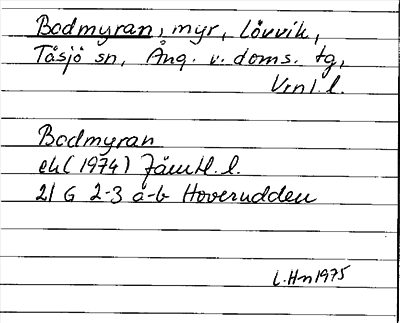 Bodmyran, myr, Lövvik,
Tåsjö sn, Ång. v. doms. tg,
Vrnl. l.
Bodmyran
ek (1974) Jämtl. l.
21 G 2-3 a-b Hoverudden
L. Hn 1975